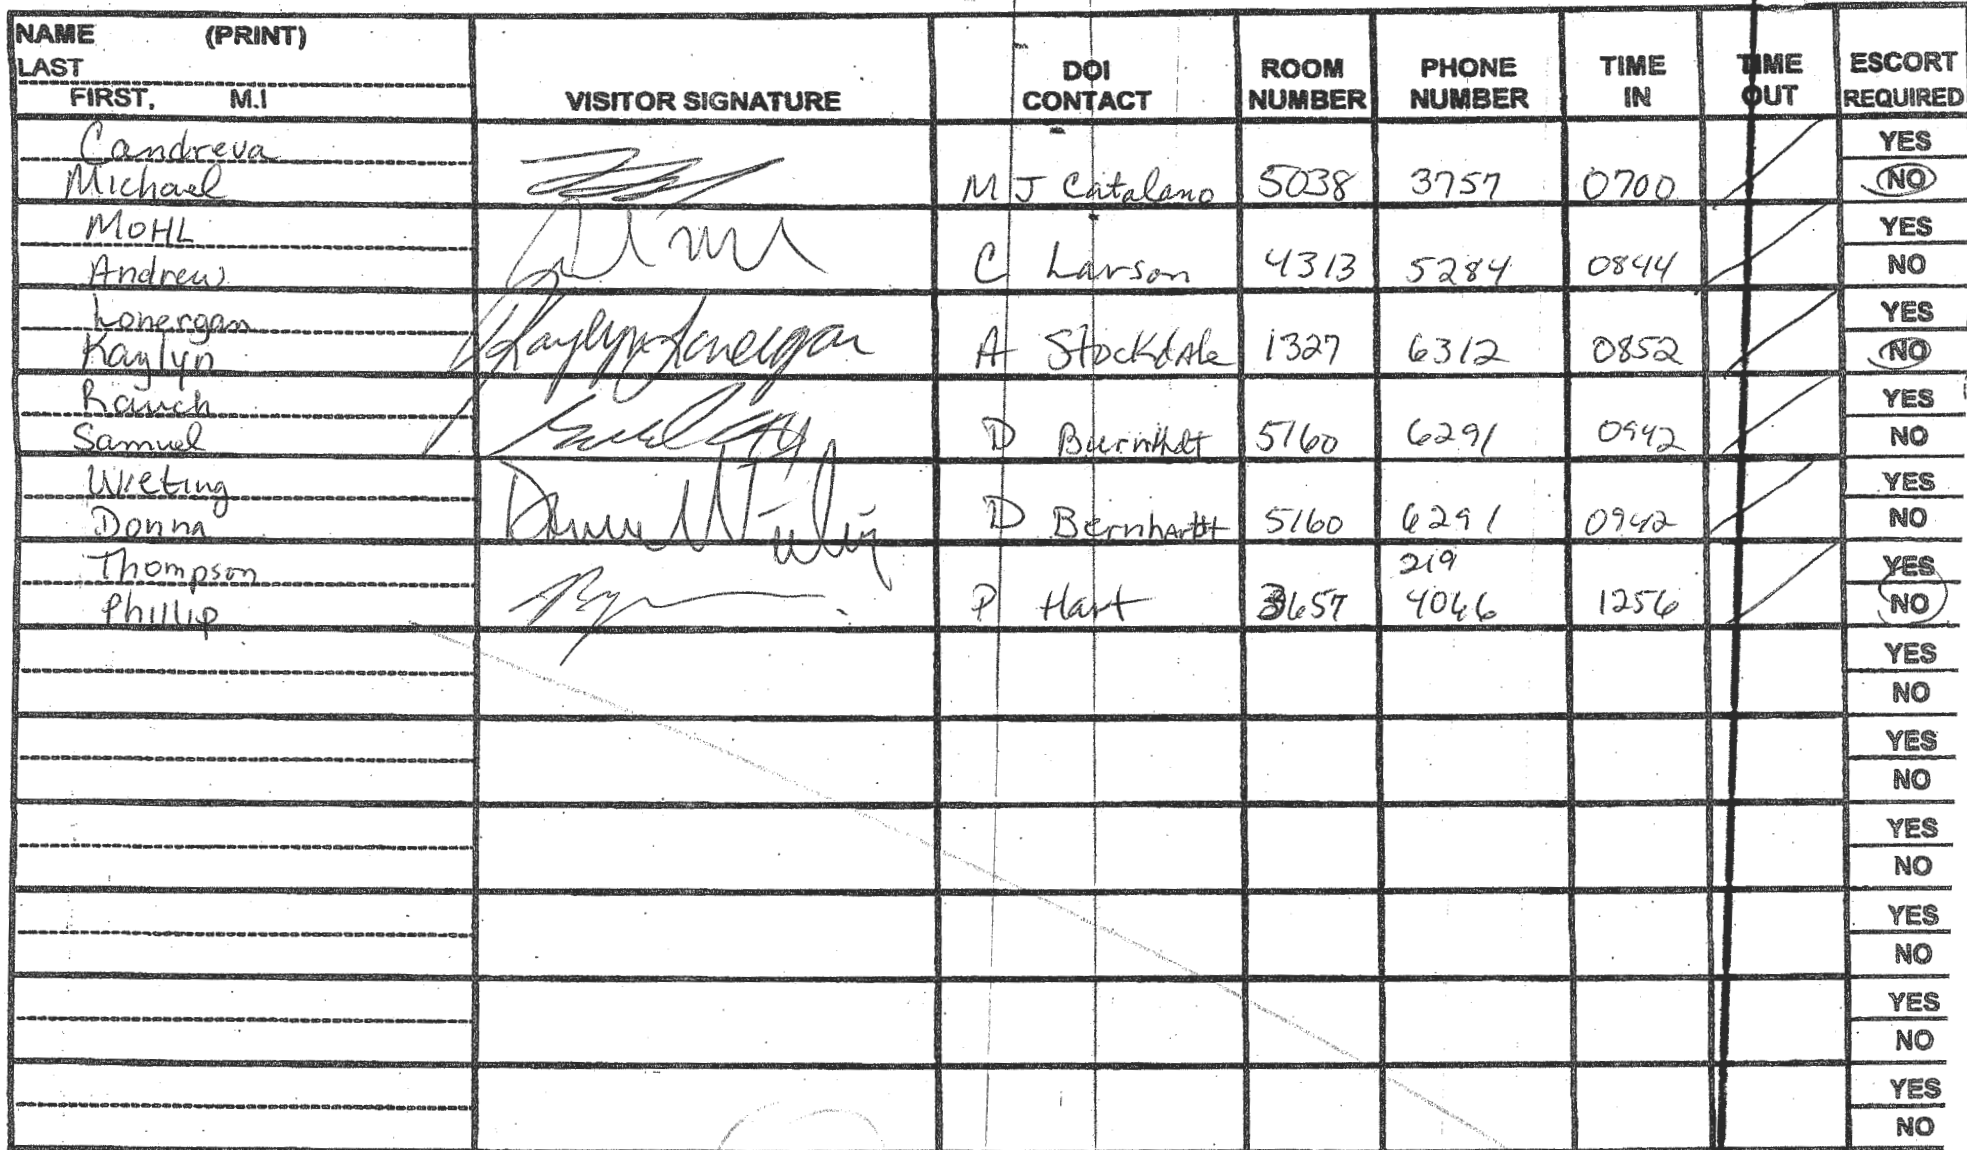 NAME (PRINT)
LAST
FIRST, M.I
VISITOR SIGNATURE
DOI CONTACT
ROOM NUMBER
PHONE NUMBER
TIME IN
TIME OUT
ESCORT REQUIRED
Candreva YES
Michael M J Catalano 5038 3757 0700 NO
MOHL YES
Andrew C Larson 4313 5284 0844 NO
Lonergan YES
Kaylyn Kaylyn Lonergan A Stockdale 1327 6312 0852 NO
Rauch YES
Samuel D 5160 6291 0942 NO
Wieting YES
Donna D Bernhardt 5160 6291 0942 NO
Thompson 219 YES
Phillip P Hart 3657 4046 1256 NO
YES
NO
YES
NO
YES
NO
YES
NO
YES
NO
YES
NO